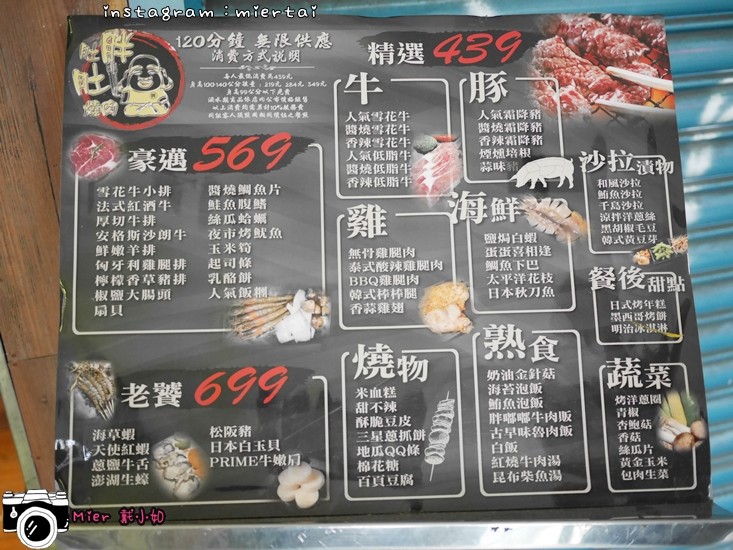 instagram：miertai
胖肚肚
燒肉
120分鐘 無限供應
消費方式說明
每人最低消費為439元
身高100140公分孩童：219元 284元 349元
身高99公分以下免費
以上消費均需算計10%服務費
精選 439
牛
人氣雪花牛
醬燒雪花牛
香辣雪花牛
人氣低脂牛
醬燒低脂牛
香辣低脂牛
豚
人氣霜降豬
醬燒霜降豬
香辣霜降豬
煙燻培根
蒜味豬
沙拉漬物
和風沙拉
鮪魚沙拉
千島沙拉
涼拌洋蔥絲
黑胡椒毛豆
韓式黃豆芽
豪邁 569
雪花牛小排
法式紅酒牛
厚切牛排
安格斯沙朗牛
鮮嫩羊排
匈牙利雞腿排
檸檬香草豬排
椒鹽大腸頭
扇貝
醬燒鯛魚片
鮭魚腹鰭
絲瓜蛤蠣
夜市烤魷魚
玉米筍
起司條
乳酪餅
人氣飯糰
雞
無骨雞腿肉
泰式酸辣雞腿肉
BBQ雞腿肉
韓式棒棒腿
香蒜雞翅
海鮮
鹽焗白蝦
蛋蛋喜相逢
鯛魚下巴
太平洋花枝
日本秋刀魚
餐後甜點
日式烤年糕
墨西哥烤餅
明治冰淇淋
老饕 699
海草蝦
天使紅蝦
蔥鹽牛舌
澎湖生蠔
松阪豬
日本白玉貝
PRIME牛嫩肩
燒物
米血糕
甜不辣
酥脆豆皮
三星蔥抓餅
地瓜QQ條
棉花糖
百頁豆腐
熟食
奶油金針菇
海苔泡飯
鮪魚泡飯
胖嘟嘟牛肉販
古早味魯肉飯
白飯
紅燒牛肉湯
昆布柴魚湯
蔬菜
烤洋蔥圈
青椒
杏鮑菇
香菇
絲瓜片
黃金玉米
包肉生菜
Mier 戴小如